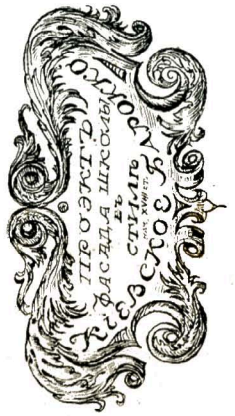 ПРОЭКТЪ
ФАСАДА ШКОЛЫ
ВЪ
СТИЛѢ
НАЧ. XVIII СТ.
КІЕВСКОЕ БАРОККО